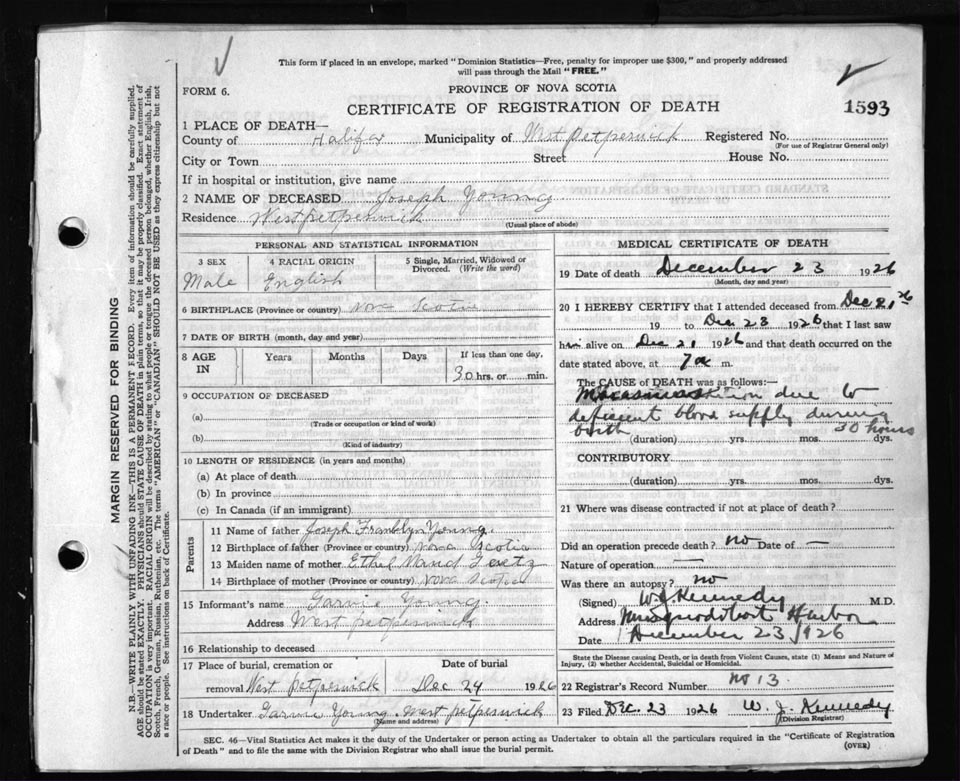 This form if placed in an envelope, marked "Dominion Statistics—Free, penalty for improper use $300," and properly addressed
will pass through the Mail "FREE."
FORM 6.
PROVINCE OF NOVA SCOTIA
CERTIFICATE OF REGISTRATION OF DEATH
1593
1 PLACE OF DEATH—
County of Halifax Municipality of West petpeswick Registered No.
(For use of Registrar General only)
City or Town Street House No.
If in hospital or institution, give name
2 NAME OF DECEASED Joseph Young
Residence West petpeswick
(Usual place of abode)
PERSONAL AND STATISTICAL INFORMATION
3 SEX 4 RACIAL ORIGIN 5 Single, Married, Widowed or Divorced. (Write the word)
Male English
6 BIRTHPLACE (Province or country) Nova Scotia
7 DATE OF BIRTH (month, day and year)
8 AGE IN Years Months Days If less than one day,
30 hrs. or min.
9 OCCUPATION OF DECEASED
(a)
(Trade or occupation or kind of work)
(b)
(Kind of industry)
10 LENGTH OF RESIDENCE (in years and months)
(a) At place of death
(b) In province
(c) In Canada (if an immigrant)
Parents
11 Name of father Joseph Franklyn Young.
12 Birthplace of father (Province or country) Nova Scotia
13 Maiden name of mother Ethel Maud
14 Birthplace of mother (Province or country) Nova Scotia
15 Informant's name Garnie Young.
Address West petpeswick
16 Relationship to deceased
17 Place of burial, cremation or Date of burial
removal West Petpeswick Dec 24 1926
18 Undertaker Garnie Young West petpeswick
(Name and address)
MEDICAL CERTIFICATE OF DEATH
19 Date of death December 23 1926
(Month, day and year)
20 I HEREBY CERTIFY that I attended deceased from Dec 21 26
19 to Dec 23 1926 that I last saw
him alive on Dec 21 1926 and that death occurred on the
date stated above, at 7 a m.
The CAUSE of DEATH was as follows:—
due to
deficient blood supply during
birth 30 hours
(duration) yrs. mos. dys.
CONTRIBUTORY
(duration) yrs. mos. dys.
21 Where was disease contracted if not at place of death?
Did an operation precede death? no Date of —
Nature of operation —
Was there an autopsy? no
(Signed) W J Kennedy M.D.
Address Musquodoboit Harbor
Date December 23/1926
State the Disease causing Death, or in death from Violent Causes, state (1) Means and Nature of
Injury, (2) whether Accidental, Suicidal or Homicidal.
22 Registrar's Record Number no 13.
23 Filed Dec. 23 1926 W. J. Kennedy
(Division Registrar)
SEC. 46—Vital Statistics Act makes it the duty of the Undertaker or person acting as Undertaker to obtain all the particulars required in the "Certificate of Registration
of Death" and to file the same with the Division Registrar who shall issue the burial permit.
(OVER)
MARGIN RESERVED FOR BINDING
N.B.—WRITE PLAINLY WITH UNFADING INK—THIS IS A PERMANENT RECORD. Every item of information should be carefully supplied.
AGE should be stated EXACTLY. PHYSICIANS should STATE CAUSE OF DEATH in plain terms, so that it may be properly classified. Exact statement of
OCCUPATION is very important. RACIAL ORIGIN will be described by stating to what people or tongue the deceased person belonged, whether English, Irish,
Scotch, French, German, Russian, Ruthenian, etc. The terms "AMERICAN" or "CANADIAN" SHOULD NOT BE USED as they express citizenship but not
a race or people. See instructions on back of Certificate.